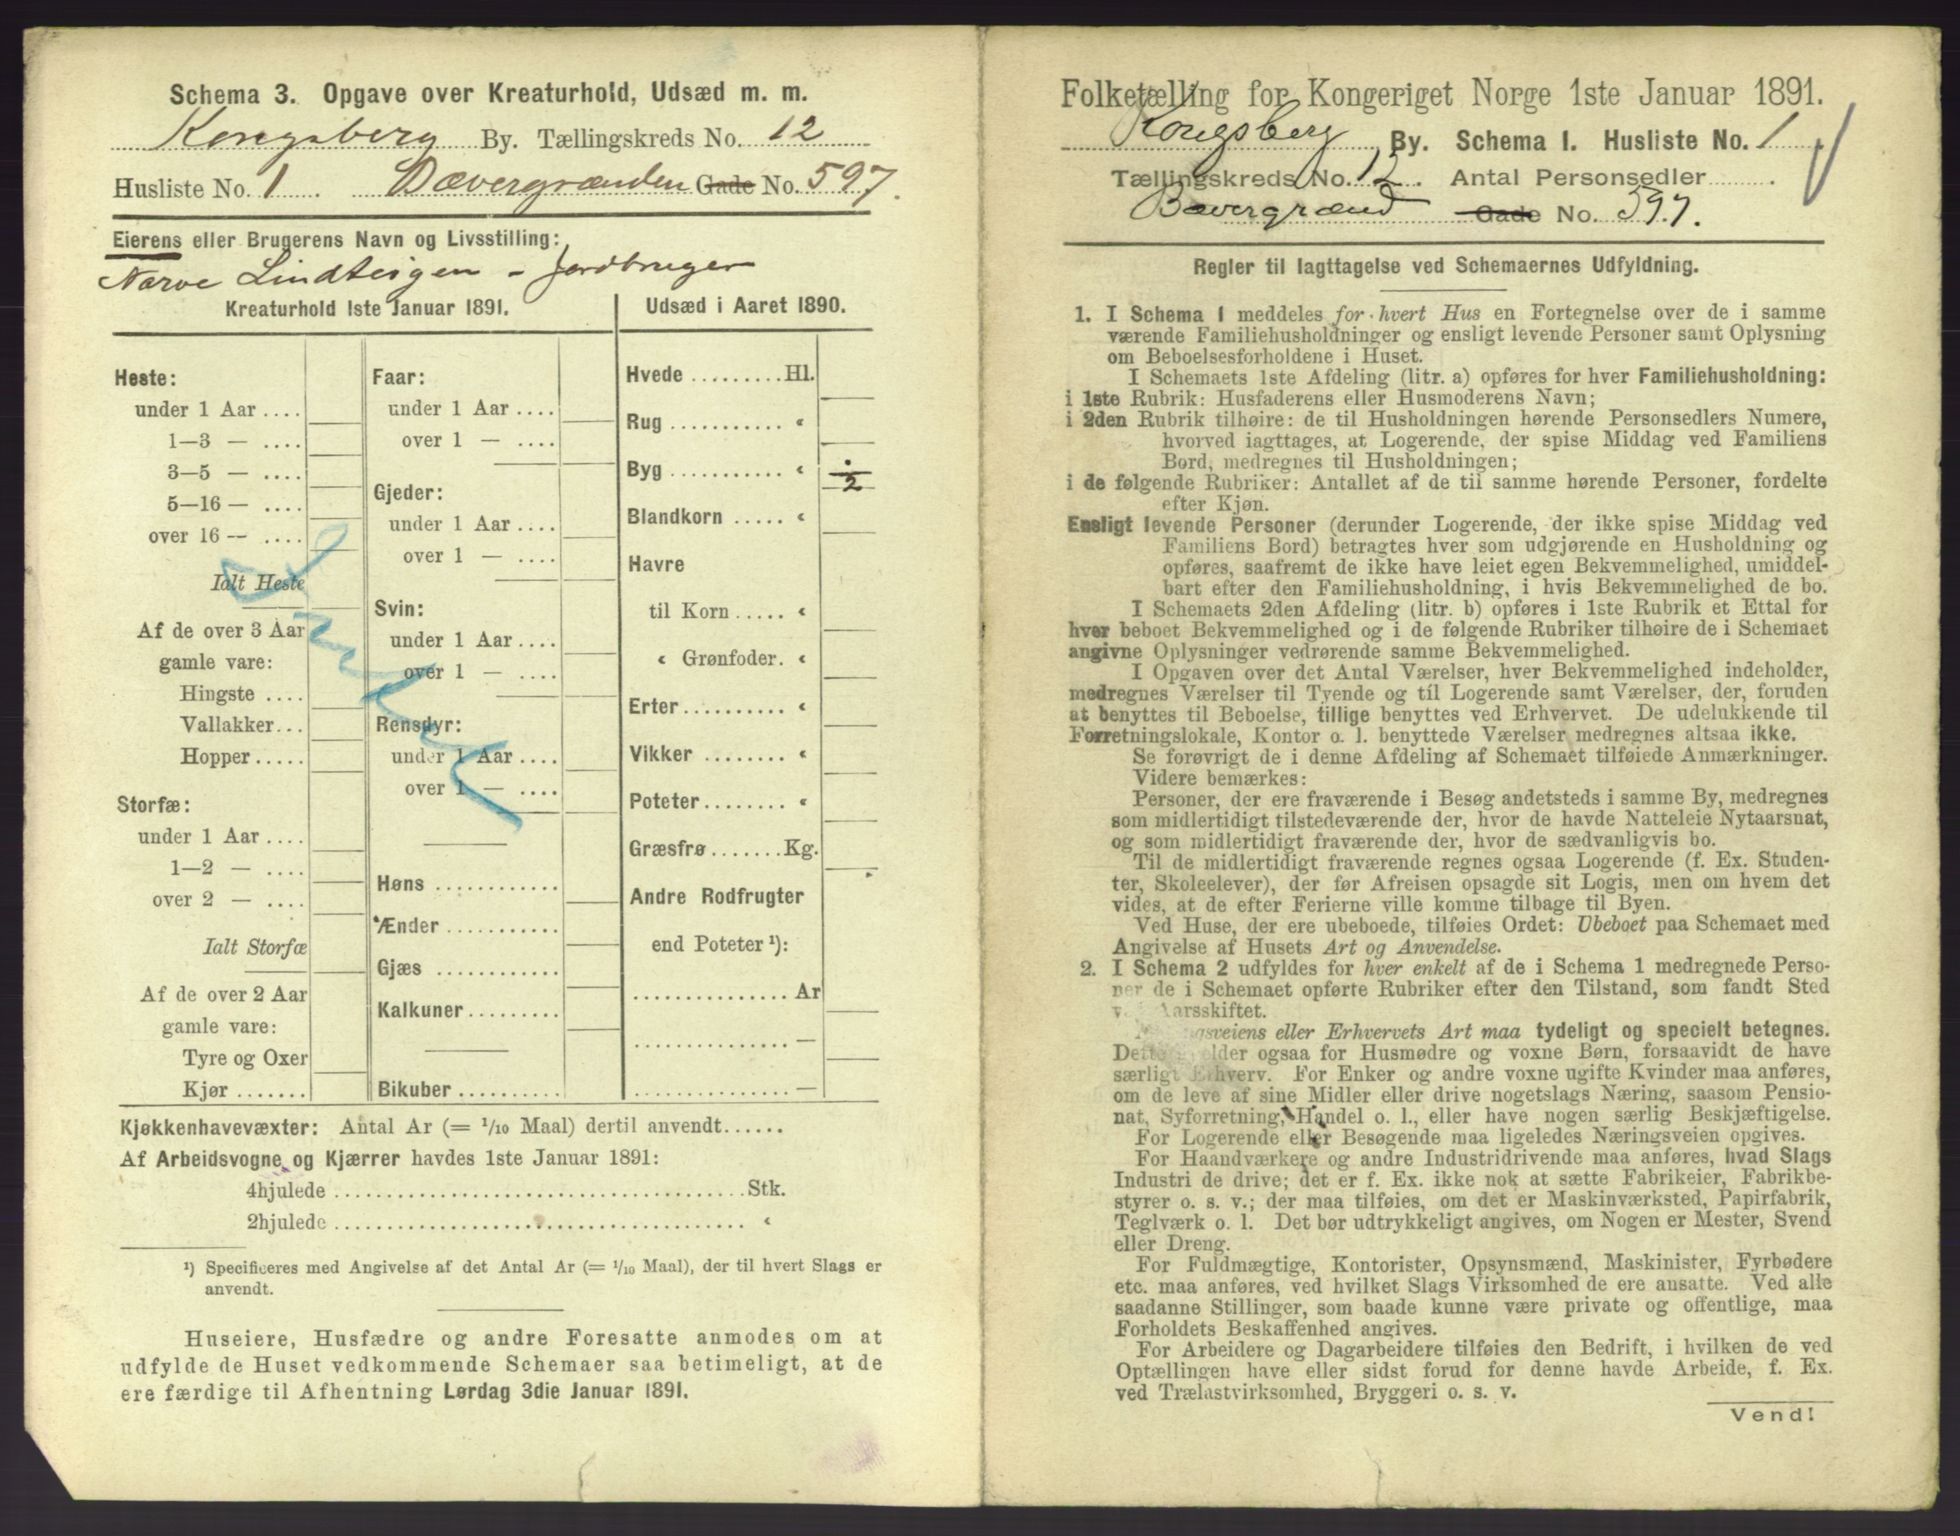 Schema 3. Opgave over Kreaturhold, Udsæd m. m.
Kongsberg By. Tællingskreds No. 12
Husliste No. 1 Bævergrænden Gade No. 597.
Eierens eller Brugerens Navn og Livsstilling:
Narve Lindteigen - Jordbruger
Kreaturhold 1ste Januar 1891.
Heste:
under 1 Aar ....
1—3 — ....
3—5 — ....
5—16 — ....
over 16 — ....
Ialt Heste
Af de over 3 Aar
gamle vare:
Hingste ....
Vallakker...
Hopper.....
Storfæ:
under 1 Aar ....
1—2 — ....
over 2 — ....
Ialt Storfæ
Af de over 2 Aar
gamle vare:
Tyre og Oxer
Kjør .......
Faar:
under 1 Aar ....
over 1 — ....
Gjeder:
under 1 Aar ....
over 1 — ....
Svin:
under 1 Aar ....
over 1 — ....
Rensdyr:
under 1 Aar ....
over 1 — ....
Høns ............
Ænder ...........
Gjæs ............
Kalkuner.........
Bikuber ..........
Udsæd i Aaret 1890.
Hvede .........Hl.
Rug ........... «
Byg ........... « 2
Blandkorn ..... «
Havre
til Korn ..... «
« Grønfoder. «
Erter.......... «
Vikker ........ «
Poteter........ «
Græsfrø.......Kg.
Andre Rodfrugter
end Poteter ¹):
............... Ar
............... —
............... —
Kjøkkenhavevæxter: Antal Ar (= 1/10 Maal) dertil anvendt......
Af Arbeidsvogne og Kjærrer havdes 1ste Januar 1891:
4hjulede .......................................Stk.
2hjulede ....................................... «
¹) Specificeres med Angivelse af det Antal Ar (= 1/10 Maal), der til hvert Slags er
anvendt.
Huseiere, Husfædre og andre Foresatte anmodes om at
udfylde de Huset vedkommende Schemaer saa betimeligt, at de
ere færdige til Afhentning Lørdag 3die Januar 1891.
Folketælling for Kongeriget Norge 1ste Januar 1891.
Kongsberg By. Schema I. Husliste No. 1
Tællingskreds No. 12. Antal Personsedler .
Bævergrænd Gade No. 597.
Regler til Iagttagelse ved Schemaernes Udfyldning.
1. I Schema 1 meddeles for hvert Hus en Fortegnelse over de i samme
værende Familiehusholdninger og ensligt levende Personer samt Oplysning
om Beboelsesforholdene i Huset.
I Schemaets 1ste Afdeling (litr. a) opføres for hver Familiehusholdning:
i 1ste Rubrik: Husfaderens eller Husmoderens Navn;
i 2den Rubrik tilhøire: de til Husholdningen hørende Personsedlers Numere,
hvorved iagttages, at Logerende, der spise Middag ved Familiens
Bord, medregnes til Husholdningen;
i de følgende Rubriker: Antallet af de til samme hørende Personer, fordelte
efter Kjøn.
Ensligt levende Personer (derunder Logerende, der ikke spise Middag ved
Familiens Bord) betragtes hver som udgjørende en Husholdning og
opføres, saafremt de ikke have leiet egen Bekvemmelighed, umiddel-
bart efter den Familiehusholdning, i hvis Bekvemmelighed de bo.
I Schemaets 2den Afdeling (litr. b) opføres i 1ste Rubrik et Ettal for
hver beboet Bekvemmelighed og i de følgende Rubriker tilhøire de i Schemaet
angivne Oplysninger vedrørende samme Bekvemmelighed.
I Opgaven over det Antal Værelser, hver Bekvemmelighed indeholder,
medregnes Værelser til Tyende og til Logerende samt Værelser, der, foruden
at benyttes til Beboelse, tillige benyttes ved Erhvervet. De udelukkende til
Forretningslokale, Kontor o. l. benyttede Værelser medregnes altsaa ikke.
Se forøvrigt de i denne Afdeling af Schemaet tilføiede Anmærkninger.
Videre bemærkes:
Personer, der ere fraværende i Besøg andetsteds i samme By, medregnes
som midlertidigt tilstedeværende der, hvor de havde Natteleie Nytaarsnat,
og som midlertidigt fraværende der, hvor de sædvanligvis bo.
Til de midlertidigt fraværende regnes ogsaa Logerende (f. Ex. Studen-
ter, Skoleelever), der før Afreisen opsagde sit Logis, men om hvem det
vides, at de efter Ferierne ville komme tilbage til Byen.
Ved Huse, der ere ubeboede, tilføies Ordet: Ubeboet paa Schemaet med
Angivelse af Husets Art og Anvendelse.
2. I Schema 2 udfyldes for hver enkelt af de i Schema 1 medregnede Perso-
ner de i Schemaet opførte Rubriker efter den Tilstand, som fandt Sted
Aarsskiftet.
eller Erhvervets Art maa tydeligt og specielt betegnes.
Dette gjelder ogsaa for Husmødre og voxne Børn, forsaavidt de have
særligt Erhverv. For Enker og andre voxne ugifte Kvinder maa anføres,
om de leve af sine Midler eller drive nogetslags Næring, saasom Pensio-
nat, Syforretning, Handel o. l., eller have nogen særlig Beskjæftigelse.
For Logerende eller Besøgende maa ligeledes Næringsveien opgives.
For Haandværkere og andre Industridrivende maa anføres, hvad Slags
Industri de drive; det er f. Ex. ikke nok at sætte Fabrikeier, Fabrikbe-
styrer o. s. v.; der maa tilføies, om det er Maskinværksted, Papirfabrik,
Teglværk o. l. Det bør udtrykkeligt angives, om Nogen er Mester, Svend
eller Dreng.
For Fuldmægtige, Kontorister, Opsynsmænd, Maskinister, Fyrbødere
etc. maa anføres, ved hvilket Slags Virksomhed de ere ansatte. Ved alle
saadanne Stillinger, som baade kunne være private og offentlige, maa
Forholdets Beskaffenhed angives.
For Arbeidere og Dagarbeidere tilføies den Bedrift, i hvilken de ved
Optællingen have eller sidst forud for denne havde Arbeide, f. Ex.
ved Trælastvirksomhed, Bryggeri o. s. v.
Vend!